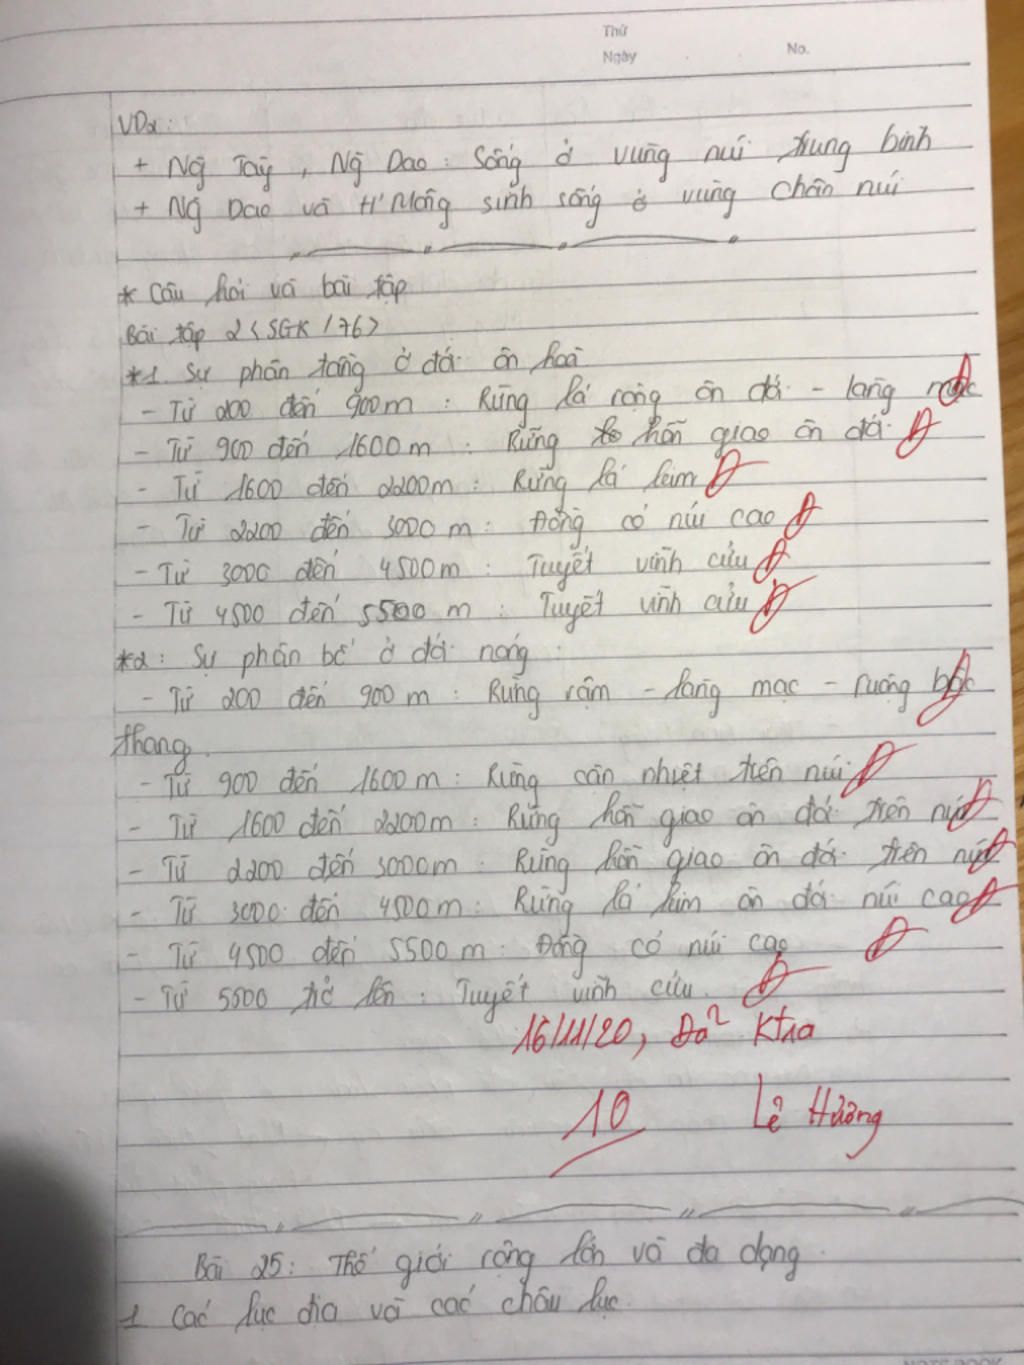 Thứ
Ngày
No.
VD2:
+ Ng Tày, Ng Dao: Sống ở vùng núi trung bình
+ Ng Dao và H'Mông sinh sống ở vùng chân núi
* Câu hỏi và bài tập
Bài tập 2 <SGK / 76>
*1. Sự phân tầng ở đới ôn hoà
- Từ 200 đến 900m: Rừng lá rộng ôn đới - làng mạc
- Từ 900 đến 1600m: Rừng hỗn giao ôn đới
- Từ 1600 đến 2200m: Rừng lá kim
- Từ 2200 đến 3000m: Đồng cỏ núi cao
- Từ 3000 đến 4500m: Tuyết vĩnh cửu
- Từ 4500 đến 5500m: Tuyết vĩnh cửu
*2: Sự phân bố ở đới nóng:
- Từ 200 đến 900m: Rừng rậm - làng mạc - ruộng bậc
thang.
- Từ 900 đến 1600m: Rừng cận nhiệt trên núi
- Từ 1600 đến 2200m: Rừng hỗn giao ôn đới trên núi
- Từ 2200 đến 3000m: Rừng hỗn giao ôn đới trên núi
- Từ 3000 đến 4500m: Rừng lá kim ôn đới núi cao
- Từ 4500 đến 5500m: Đồng cỏ núi cao
- Từ 5500 trở lên: Tuyết vĩnh cửu.
16/11/20, Đã Ktra
10 Lê Hương
Bài 25: Thế giới rộng lớn và đa dạng.
1 Các lục địa và các châu lục.